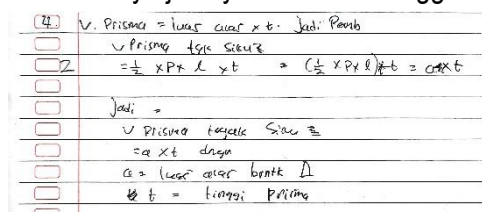 4. V. Prisma = luas alas x t. Jadi Pemb
V Prisma tgk siku2
2 = 1/2 x P x l x t = (1/2 x P x l) x t = a x t
Jadi =
V Prisma tegak Siku 2
= a x t dngn
a = luas alas bentk Δ
t = tinggi Prisma